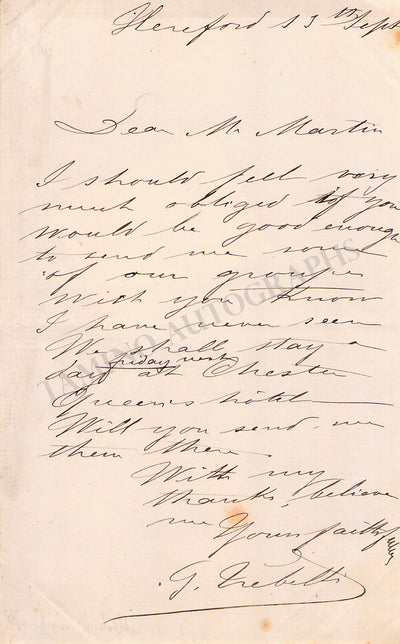 Hereford 13th Sept
Dear Mr Martin
I should fell very
much obliged if you
would be good enough
to send me some
of our groupes
Wich you know
I have never seen
We shall stay a
friday next
day at Chester
Queen's hôtel
Will you send me
them there.
With my
thanks, believe
me Yours faithfully
Trebelli
TAMINO AUTOGRAPHS